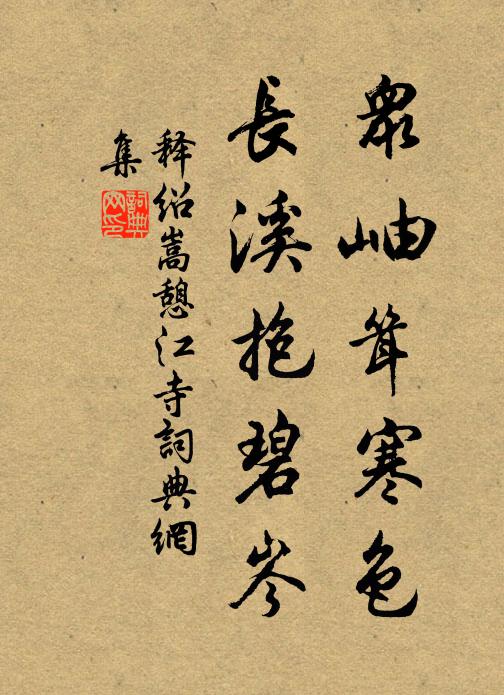 眾岫耸寒色
長溪抱碧岑
釋紹嵩憩江寺詞典網
集
詞典网印